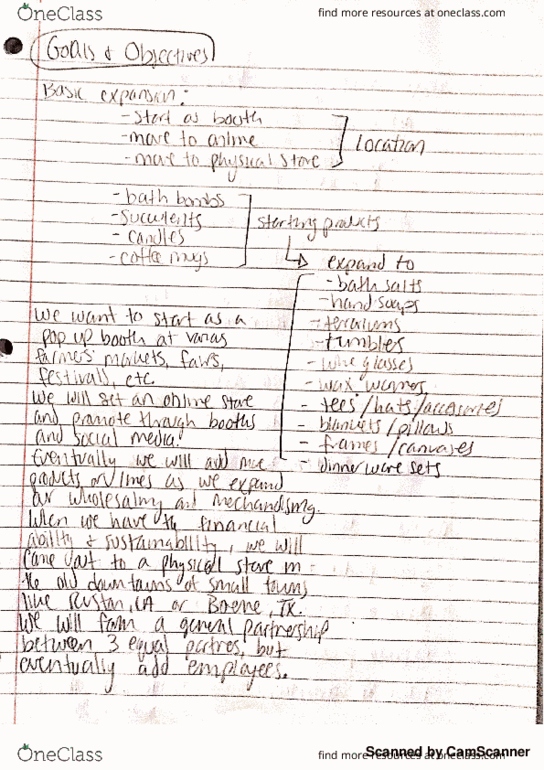 OneClass
find more resources at oneclass.com
Goals & Objectives
Basic expansion:
- Start as booth
- move to online
- move to physical store
Location
- bath bombs
- succulents
- candles
- coffee mugs
starting products
expand to
- bath salts
- hand soaps
- terrariums
- tumbles
- wine glasses
- wax warmers
- tees/hats/accessories
- blankets/pillows
- frames/canvases
- dinnerware sets
We want to start as a
pop up booth at varias
farmers markets, fairs,
festivals, etc.
We will set an online store
and promote through booths
and social media.
Eventually we will add more
products/lines as we expand
our wholesaling and merchandising.
When we have the financial
ability & sustainability, we will
come out to a physical store in
the old downtowns of small towns
like Ruston, LA or Boerne, TX.
We will form a general partnership
between 3 equal partners, but
eventually add employees.
OneClass
find more resources at oneclass.com
Scanned by CamScanner